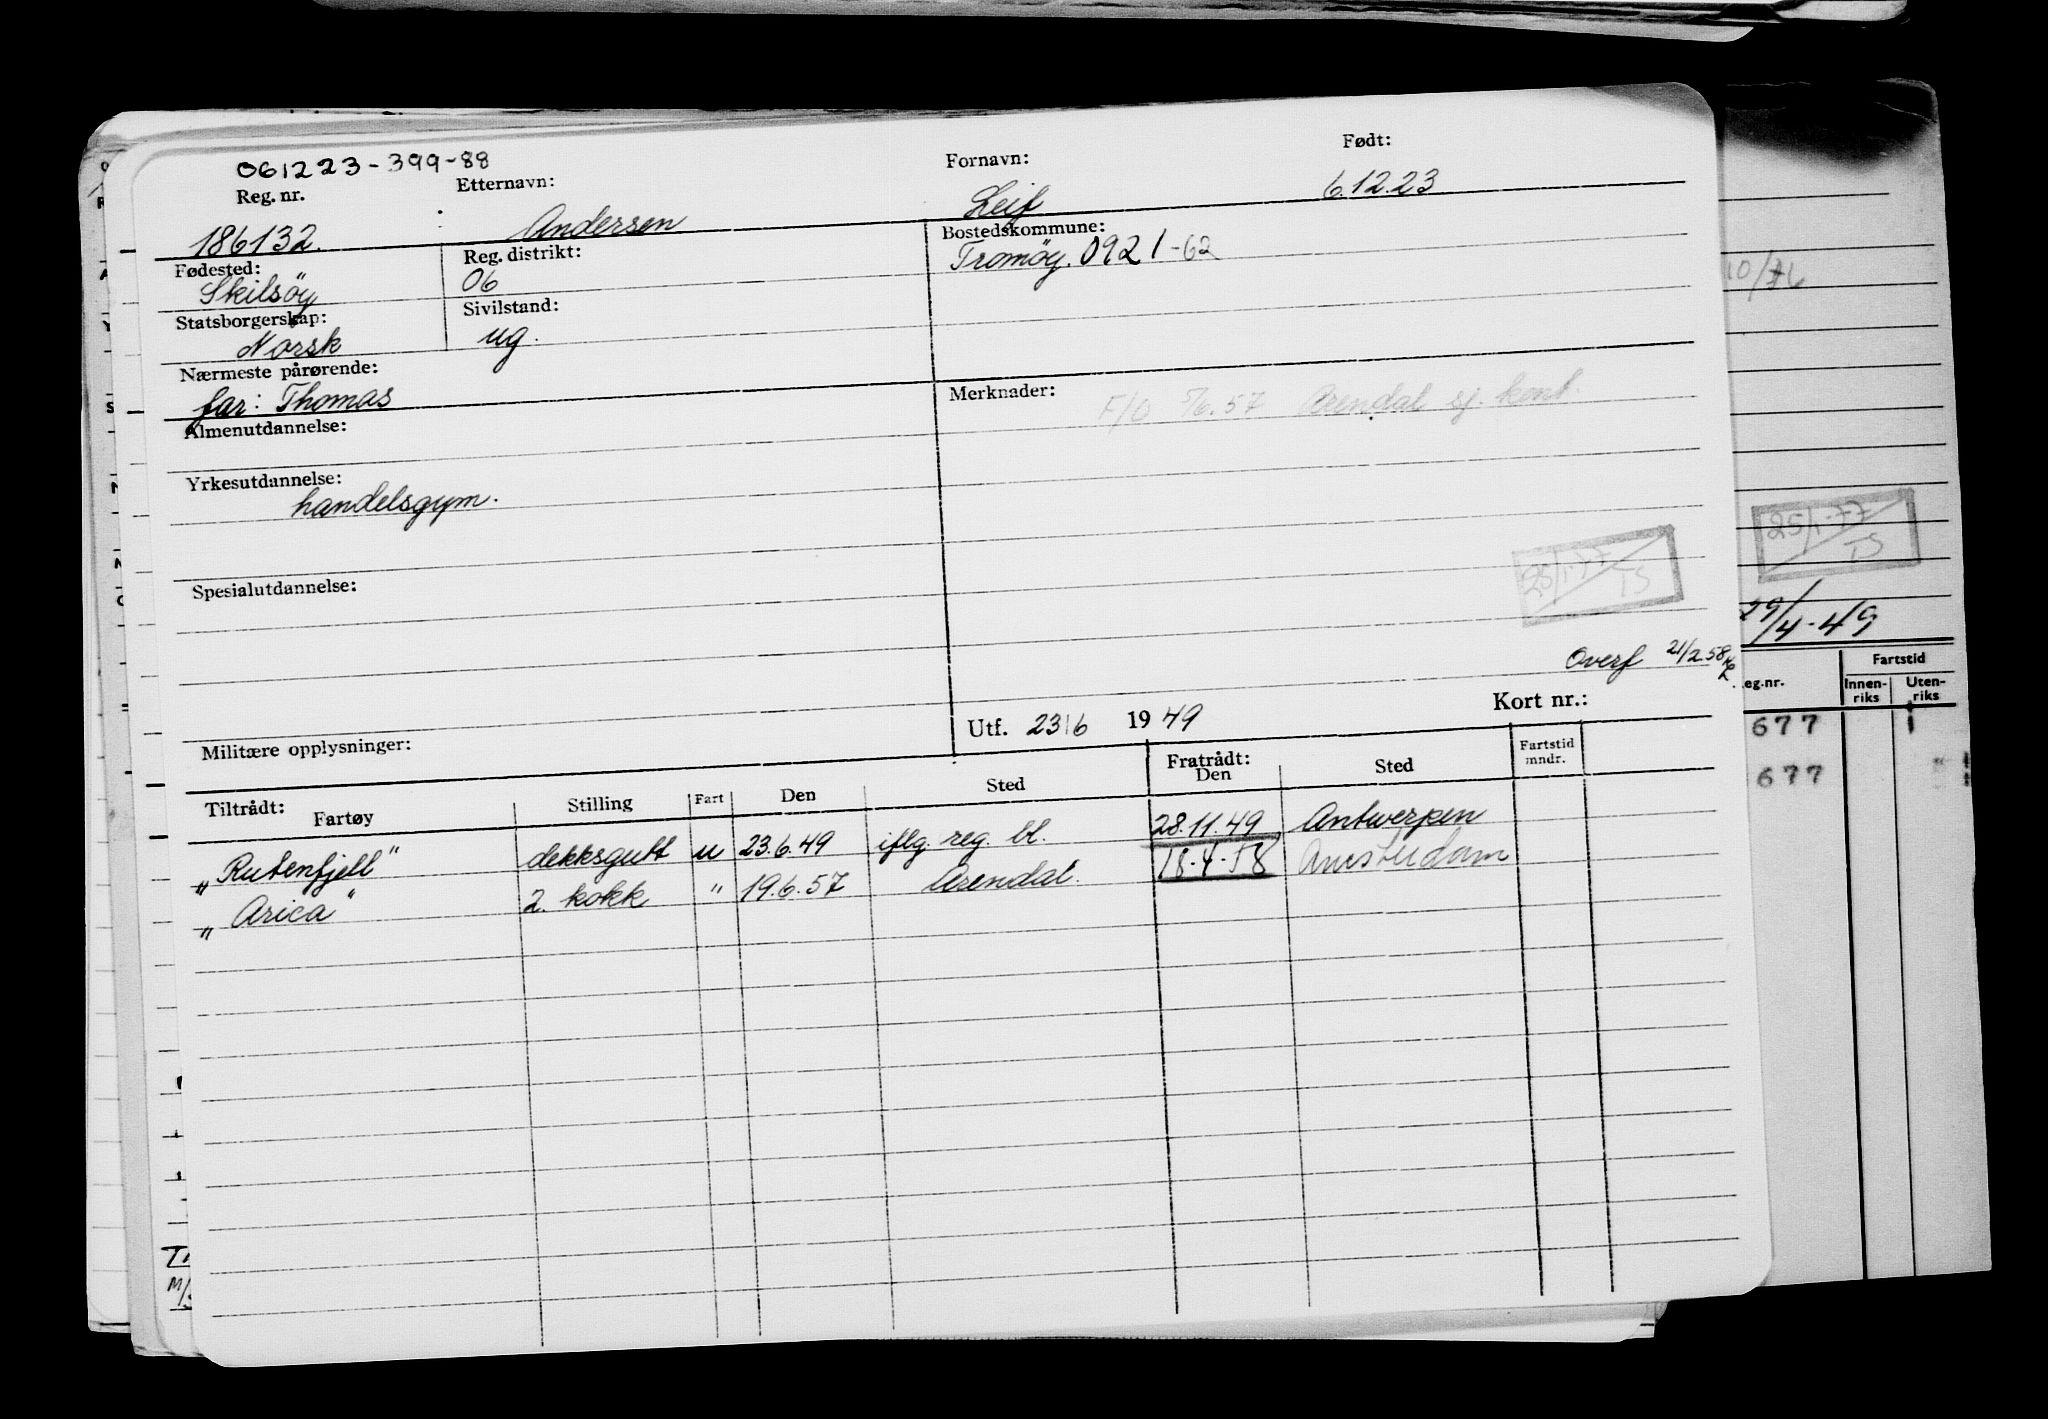 061223-399-88
Reg. nr. Etternavn: Fornavn: Født:
186132. Andersen Leif 6.12.23
Fødested: Reg. distrikt: Bostedskommune:
Skilsöy 06 Tromöy. 0921-62
Statsborgerskap: Sivilstand:
Norsk ug.
Nærmeste pårørende: Merknader:
far: Thomas F/O 5/6.57 Arendal sj. kont.
Almenutdannelse:
Yrkesutdannelse:
handelsgym.
25/1-77
TS
Spesialutdannelse:
Overf 21/2.58
Militære opplysninger: Utf. 23/6 1949 Kort nr.:
Tiltrådt: Fratrådt:
Fartøy Stilling Fart Den Sted Den Sted Fartstid mndr.
"Rutenfjell" dekksgutt u 23.6.49 iflg. reg. bl. 28.11.49 Antwerpen
"Arica" 2. kokk " 19.6.57 Arendal. 18-4-58 Amsterdam
10/76
25/1-77
TS
29/4-49
eg.nr. Fartstid
Innen-riks Uten-riks
677 1
677